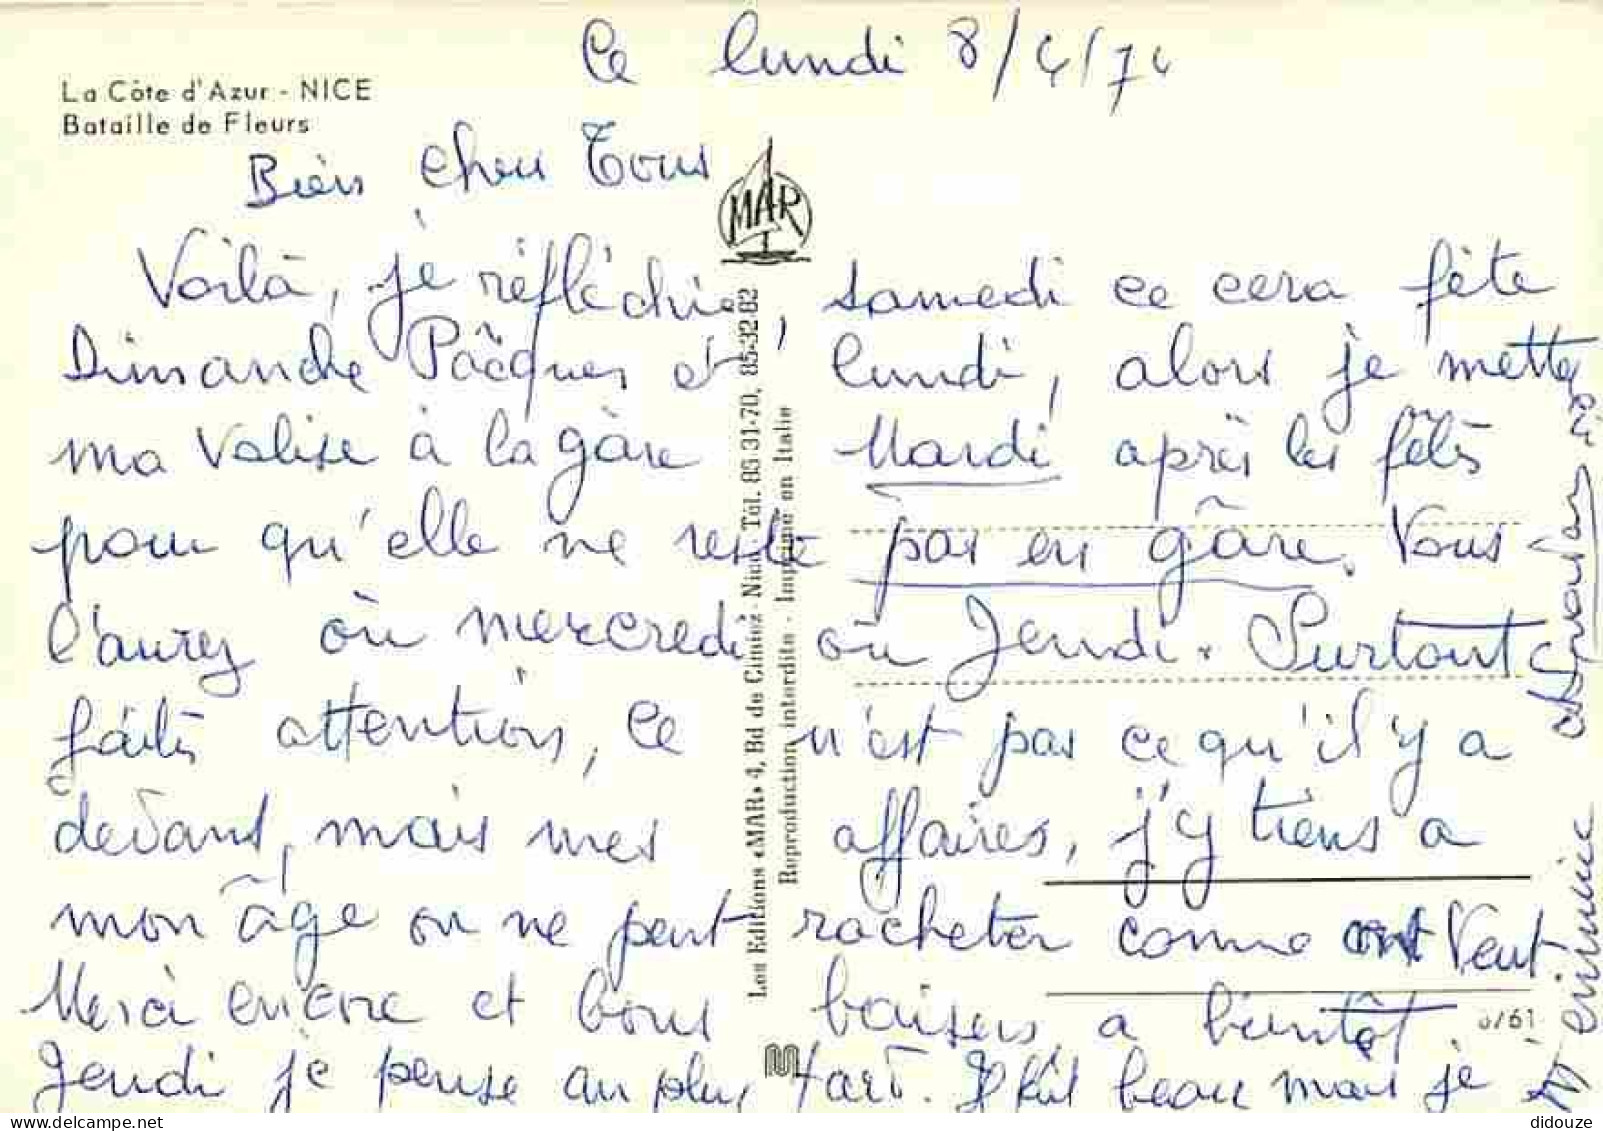 Ce lundi 8/4/74
La Côte d'Azur - NICE
Bataille de Fleurs
Bien cher Tous
MAR
Voilà, je réfléchie, samedi ce cera fête
Dimanche Pâcques et lundi, alors je mette
ma valise à la gâre Mardi après les fêtes
pour qu'elle ne reste pas en gâre. Vous
l'aurez où mercredi où Jeudi. Surtout
faites attention, ce n'est pas ce qu'il y a
devant, mais mes affaires, j'y tiens a
mon âge on ne peut racheter comme ont veut
Merci encore et bons baisers a bientôt.
Jeudi je pense au plus tard. Il fait beau mais je
6/61
Les Editions «MAR» 4, Bd de Cimiez - Nice - Tél. 85-31-70, 85-32-82
Reproduction interdite - Imprimé en Italie
didouze